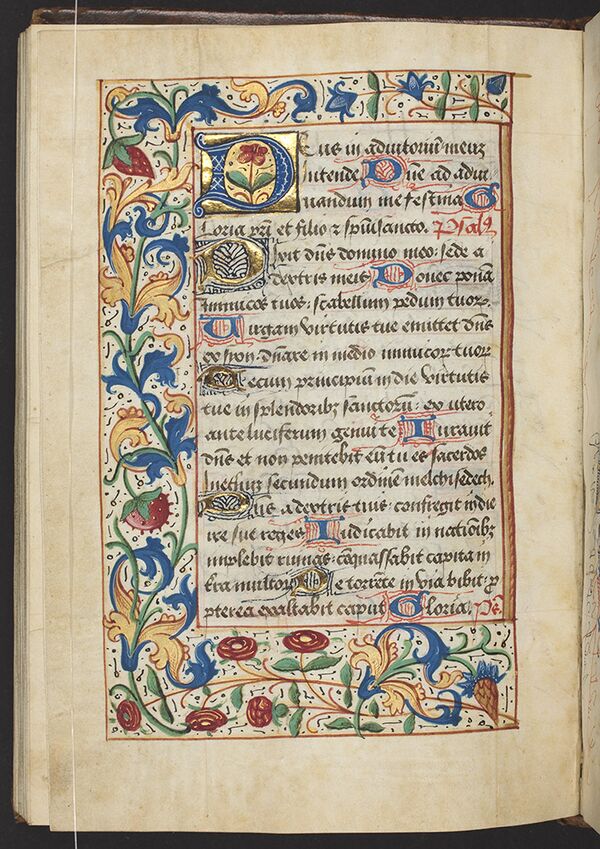 Deus in adiutorium meuz
intende Dne ad adiu
uandum me festina G
loria pri et filio ⁊ spui sancto. Psal9
Dixit dns domino meo: sede a
dextris meis Donec ponā
inimicos tuos: scabellum pedum tuoꝝ
Uirgam virtutis tue emittet dns
ex syon: dnare in medio inimicoꝝ tuoꝝ
Tecum principium in die virtutis
tue in splendoribꝫ sanctorū: ex utero
ante luciferum genui te Iurauit
dns et non penitebit eū tu es sacerdos
in eternū secundum ordinem melchisedech.
Dns a dextris tuis: confregit in die
ire sue reges Iudicabit in nationibꝫ
implebit ruinas: conquassabit capita in
terra multoꝝ De torrēte in via bibit: ꝓ
pterea exaltabit caput Gloria. Ps.